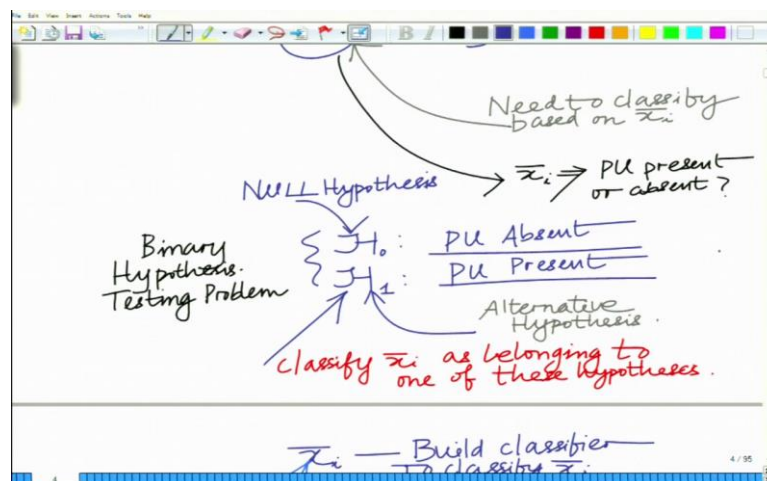 File Edit View Insert Actions Tools Help
Need to classify
based on x̄ᵢ
x̄ᵢ ⇒ PU present
or absent?
NULL Hypothesis
Binary
Hypothesis.
Testing Problem
H₀: PU Absent
H₁: PU Present
Alternative
Hypothesis.
Classify x̄ᵢ as belonging to
one of these hypotheses.
x̄ᵢ — Build classifier
To classify x̄ᵢ.
4 / 95
4